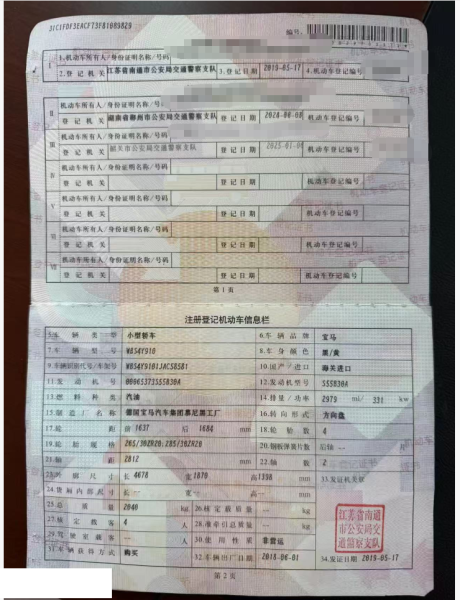 31C1FDF3EACF73F81089829
编号:
I 1.机动车所有人/身份证明名称/号码
2.登记机关 江苏省南通市公安局交通警察支队 3.登记日期 2019-05-17 4.机动车登记编号
II 机动车所有人/身份证明名称/号码
登记机关 湖南省郴州市公安局交通警察支队 登记日期 机动车登记编号
III 机动车所有人/身份证明名称/号码
登记机关 韶关市公安局交通警察支队 登记日期 机动车登记编号
IV 机动车所有人/身份证明名称/号码
登记机关 登记日期 机动车登记编号
V 机动车所有人/身份证明名称/号码
登记机关 登记日期 机动车登记编号
VI 机动车所有人/身份证明名称/号码
登记机关 登记日期 机动车登记编号
VII 机动车所有人/身份证明名称/号码
登记机关 登记日期 机动车登记编号
第1页
注册登记机动车信息栏
5.车辆类型 小型轿车 6.车辆品牌 宝马
7.车辆型号 WBS4Y910 8.车身颜色 黑/黄
9.车辆识别代号/车架号 WBS4Y9101JAC58581 10.国产/进口 海关进口
11.发动机号 12.发动机型号 S55B30A
13.燃料种类 汽油 14.排量/功率 2979 ml/ 331 kw
15.制造厂名称 德国宝马汽车集团慕尼黑工厂 16.转向形式 方向盘
17.轮距 前 1637 后 1604 mm 18.轮胎数 4
19.轮胎规格 265/30ZR20;285/30ZR20 20.钢板弹簧片数 后轴 -- 片
21.轴距 2812 mm 22.轴数 2
23.外廓尺寸 长 4678 宽 1870 高 1398 mm 33.发证机关章
24.货厢内部尺寸 长 -- 宽 -- 高 -- mm
25.总质量 2040 kg 26.核定载质量 -- kg
27.核定载客 4 人 28.准牵引总质量 -- kg
29.驾驶室载客 -- 人 30.使用性质 非营运
31.车辆获得方式 购买 32.车辆出厂日期 2018-06-01 34.发证日期 2019-05-17
江苏省南通
市公安局交
通警察支队
第2页